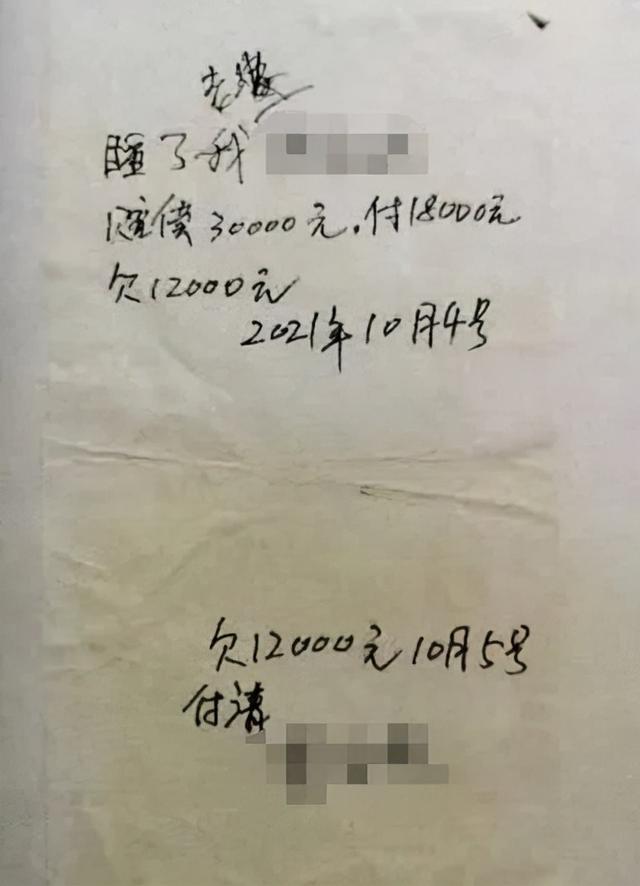 睡了我
赔偿30000元.付18000元
欠12000元
2021年10月4号
欠12000元10月5号
付清